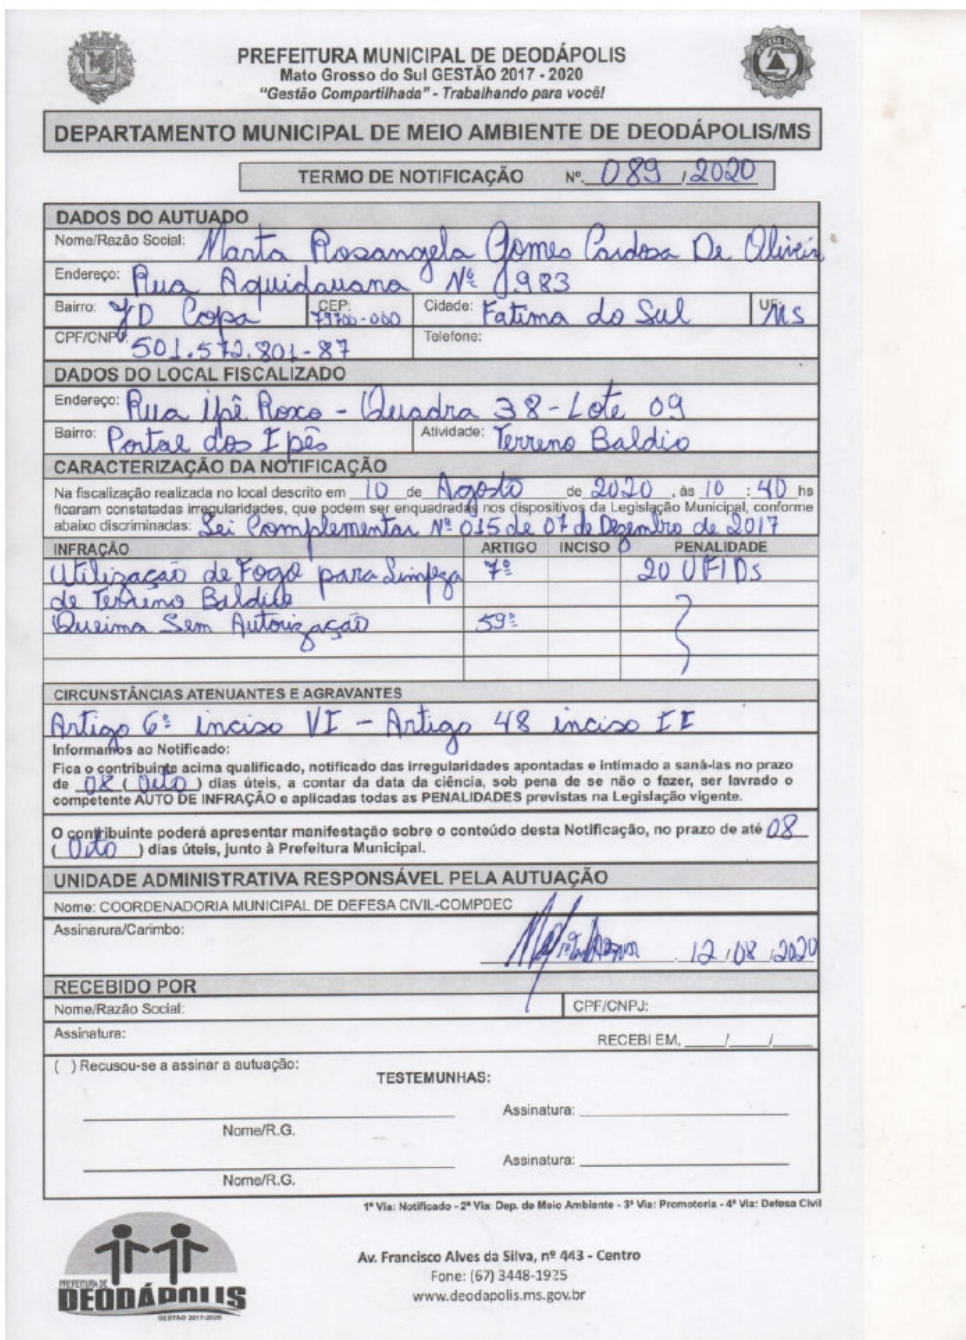 PREFEITURA MUNICIPAL DE DEODÁPOLIS
Mato Grosso do Sul GESTÃO 2017 - 2020
"Gestão Compartilhada" - Trabalhando para você!
DEPARTAMENTO MUNICIPAL DE MEIO AMBIENTE DE DEODÁPOLIS/MS
TERMO DE NOTIFICAÇÃO Nº. 089 / 2020
DADOS DO AUTUADO
Nome/Razão Social: Marta Rosangela Gomes Cardosa De Oliveira
Endereço: Rua Aquidauana Nº 983
Bairro: JD Copa CEP: 79700-000 Cidade: Fatima do Sul UF: MS
CPF/CNPJ: 501.572.801-87 Telefone:
DADOS DO LOCAL FISCALIZADO
Endereço: Rua Ipê Roxo - Quadra 38 - Lote 09
Bairro: Portal dos Ipês Atividade: Terreno Baldio
CARACTERIZAÇÃO DA NOTIFICAÇÃO
Na fiscalização realizada no local descrito em 10 de Agosto de 2020, às 10 : 40 hs
ficaram constatadas irregularidades, que podem ser enquadradas nos dispositivos da Legislação Municipal, conforme
abaixo discriminadas: Lei Complementar Nº 015 de 07 de Dezembro de 2017
INFRAÇÃO ARTIGO INCISO PENALIDADE
Utilização de Fogo para Limpeza 7º 20 UFIDs
de Terreno Baldio
Queima Sem Autorização 59º
CIRCUNSTÂNCIAS ATENUANTES E AGRAVANTES
Artigo 6º inciso VI - Artigo 48 inciso II
Informamos ao Notificado:
Fica o contribuinte acima qualificado, notificado das irregularidades apontadas e intimado a saná-las no prazo
de 08 ( Oito ) dias úteis, a contar da data da ciência, sob pena de se não o fazer, ser lavrado o
competente AUTO DE INFRAÇÃO e aplicadas todas as PENALIDADES previstas na Legislação vigente.
O contribuinte poderá apresentar manifestação sobre o conteúdo desta Notificação, no prazo de até 08
( Oito ) dias úteis, junto à Prefeitura Municipal.
UNIDADE ADMINISTRATIVA RESPONSÁVEL PELA AUTUAÇÃO
Nome: COORDENADORIA MUNICIPAL DE DEFESA CIVIL-COMPDEC
Assinarura/Carimbo:
12 / 08 / 2020
RECEBIDO POR
Nome/Razão Social: CPF/CNPJ:
Assinatura: RECEBI EM, ____/____/____
( ) Recusou-se a assinar a autuação:
TESTEMUNHAS:
Assinatura:
Nome/R.G.
Assinatura:
Nome/R.G.
1ª Via: Notificado - 2ª Via: Dep. de Meio Ambiente - 3ª Via: Promotoria - 4ª Via: Defesa Civil
PREFEITURA DE
DEODÁPOLIS
GESTÃO 2017-2020
Av. Francisco Alves da Silva, nº 443 - Centro
Fone: (67) 3448-1925
www.deodapolis.ms.gov.br